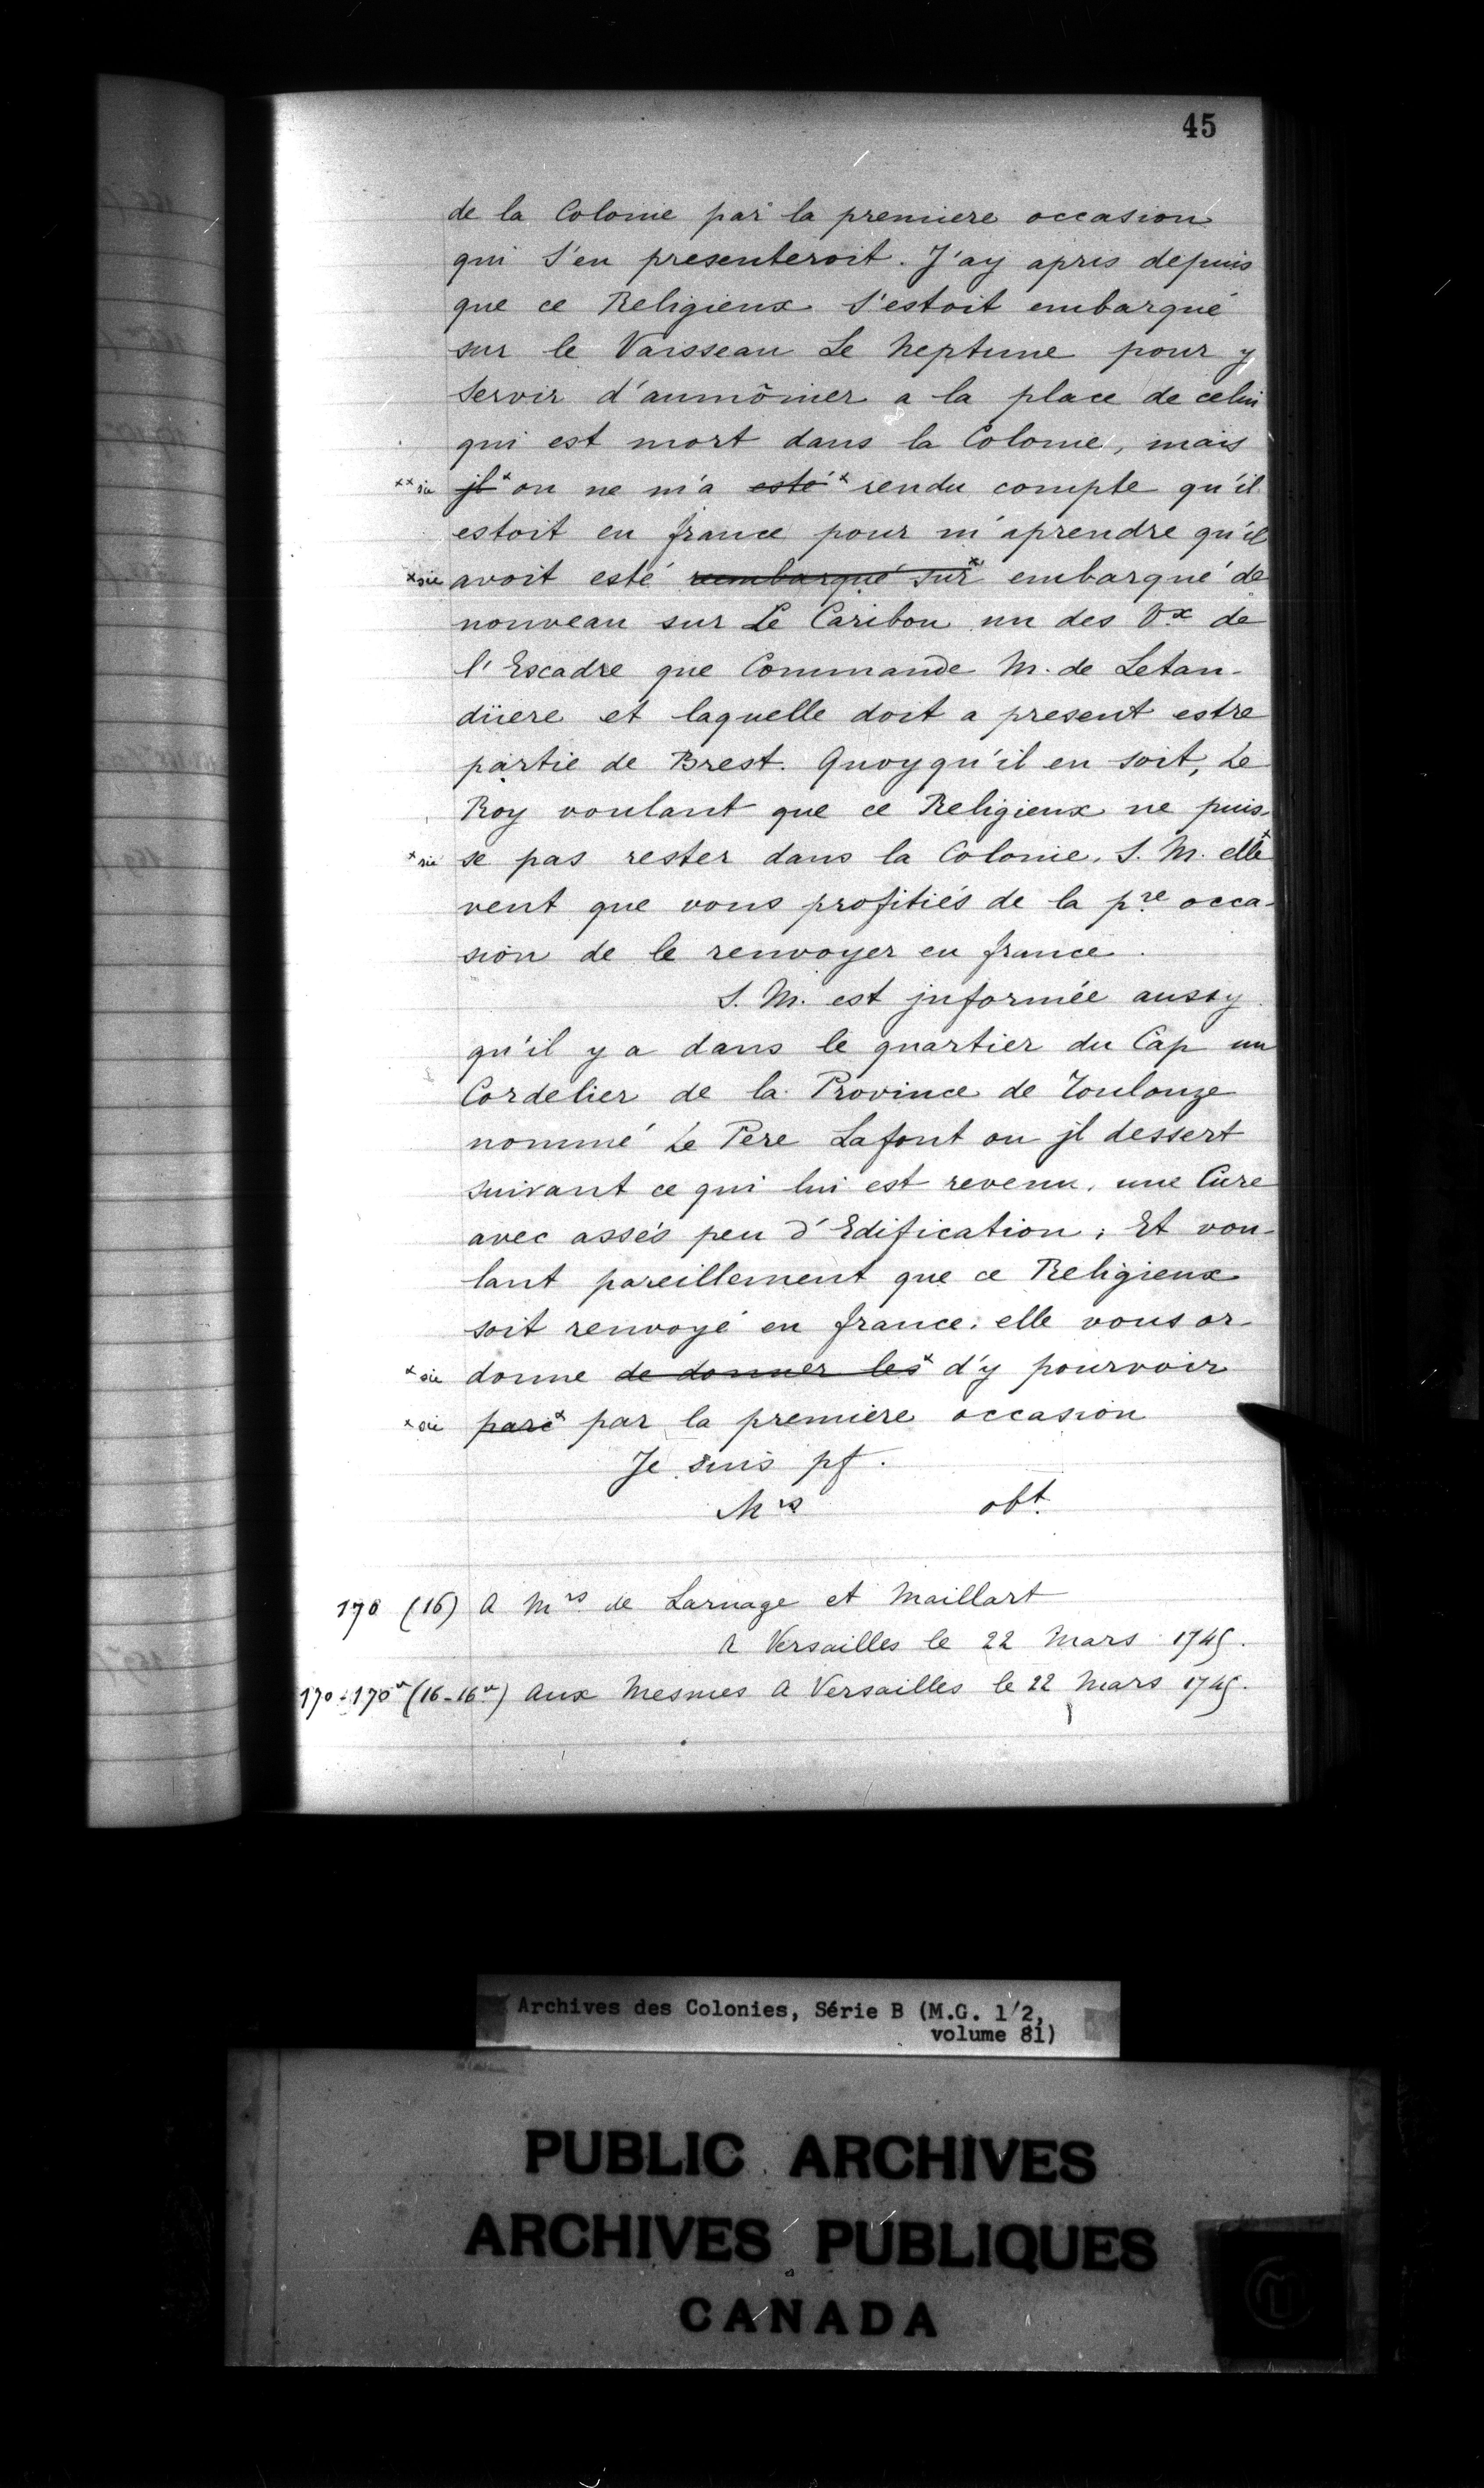 45
de la Colonie par la premiere occasion
qui s'en presenteroit. J'ay apris depuis
que ce Religieux s'estoit embarqué
sur le Vaisseau Le Neptune pour y
servir d'aumônier a la place de celui
qui est mort dans la Colonie, mais
xx sic jl x on ne m'a esté x rendu compte qu'il
estoit en france pour m'aprendre qu'il
x sic avoit esté rembarqué sur x embarqué de
nouveau sur Le Caribou un des Vx de
l'Escadre que Commande M. de Letan-
düere et laquelle doit a present estre
partie de Brest. Quoyqu'il en soit, Le
Roy voulant que ce Religieux ne puis-
x sic se pas rester dans la Colonie, S. M. elle x
veut que vous profitiés de la pre occa-
sion de le renvoyer en france.
S. M. est jnformée aussy
qu'il y a dans le quartier du Cap un
Cordelier de la Province de Toulouze
nommé Le Pere Lafont ou jl dessert
suivant ce qui lui est revenu, une Cure
avec assés peu d'Edification; Et vou-
lant pareillement que ce Religieux
soit renvoyé en france, elle vous or-
x sic donne de donner les x d'y pourvoir
x sic paré x par la premiere occasion
Je suis pf.
Mrs obt.
170 (16) A Mrs de Larnage et Maillart
A Versailles le 22 Mars 1745.
170-170v (16-16v) Aux Mesmes A Versailles le 22 Mars 1745.
Archives des Colonies, Série B (M.G. 1/2,
volume 81)
PUBLIC ARCHIVES
ARCHIVES PUBLIQUES
CANADA